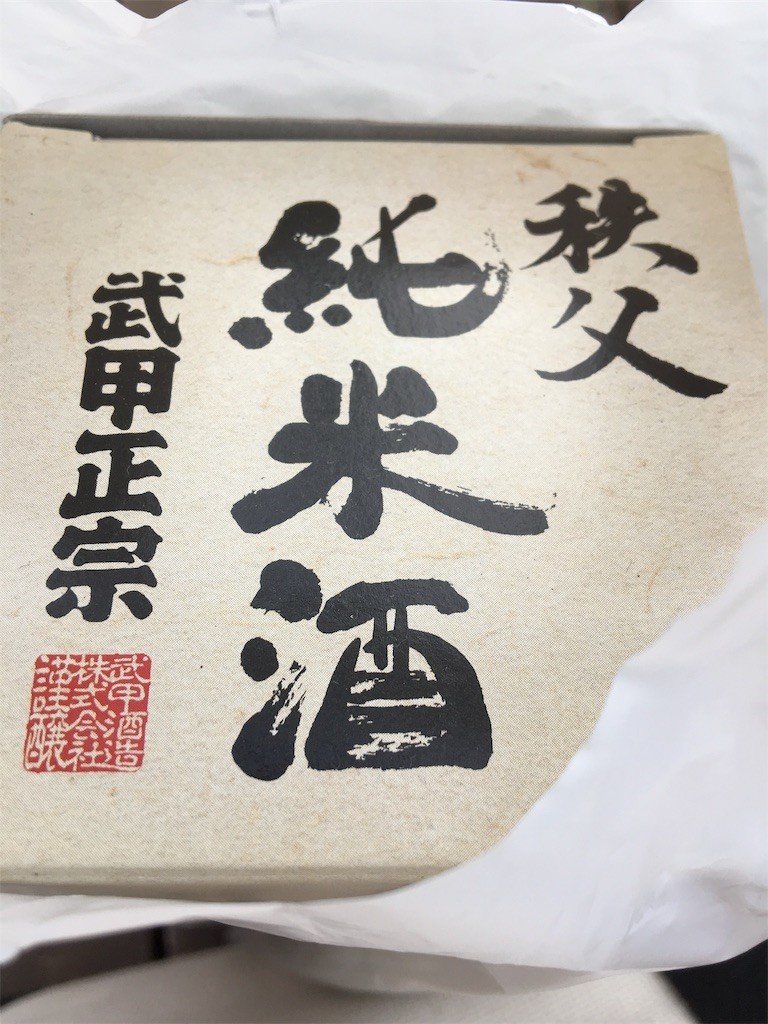 秩父
純米酒
武甲正宗
武甲酒造
株式会社
謹醸